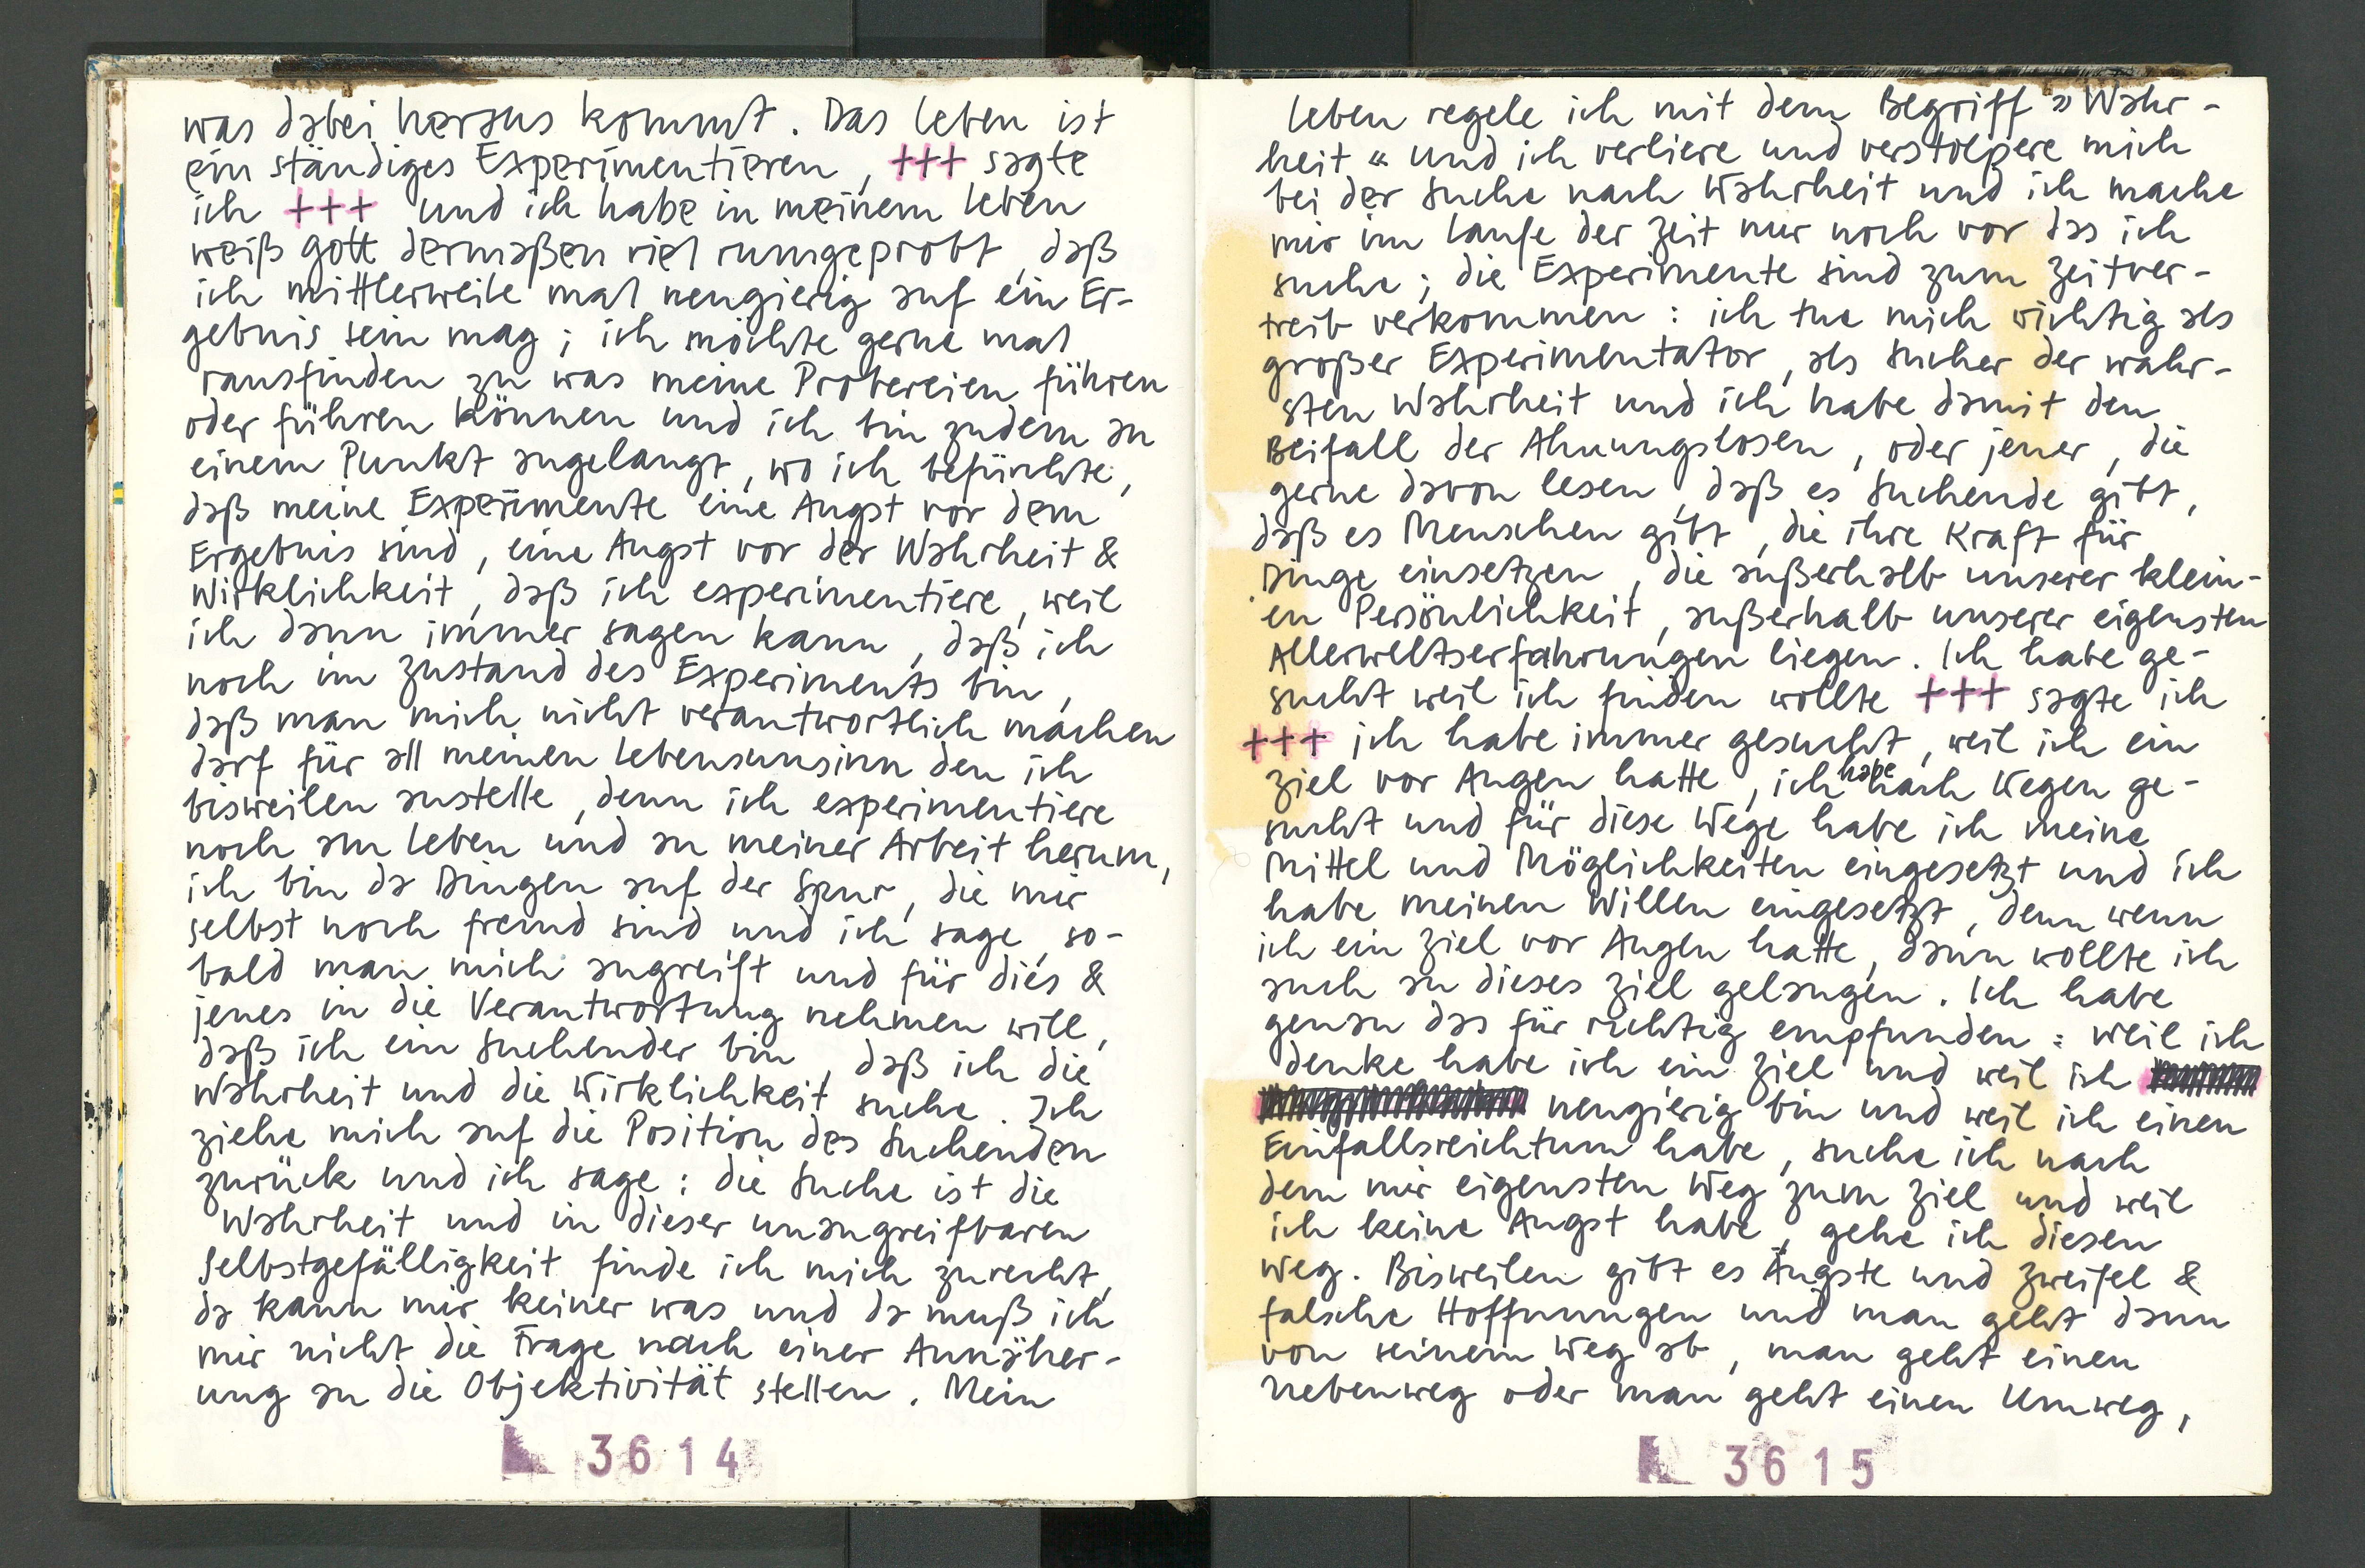 was dabei heraus kommt. Das Leben ist
ein ständiges Experimentieren, +++ sagte
ich +++ und ich habe in meinem Leben
weiß Gott dermaßen viel rumgeprobt, daß
ich mittlerweile mal neugierig auf ein Er-
gebnis sein mag; ich möchte gerne mal
rausfinden zu was meine Probereien führen
oder führen können und ich bin zudem an
einem Punkt angelangt, wo ich befürchte,
daß meine Experimente eine Angst vor dem
Ergebnis sind, eine Angst vor der Wahrheit &
Wirklichkeit, daß ich experimentiere, weil
ich dann immer sagen kann, daß ich
noch im Zustand des Experiments bin,
daß man mich nicht verantwortlich machen
darf für all meinen Lebensunsinn den ich
bisweilen anstelle, denn ich experimentiere
noch am Leben und an meiner Arbeit herum,
ich bin da Dingen auf der Spur, die mir
selbst noch fremd sind und ich sage, so-
bald man mich angreift und für dies &
jenes in die Verantwortung nehmen will,
daß ich ein Suchender bin, daß ich die
Wahrheit und die Wirklichkeit suche. Ich
ziehe mich auf die Position des Suchenden
zurück und ich sage: die Suche ist die
Wahrheit und in dieser unangreifbaren
Selbstgefälligkeit finde ich mich zurecht,
da kann mir keiner was und da muß ich
mir nicht die Frage nach einer Annäher-
ung an die Objektivität stellen. Mein
3614
Leben regele ich mit dem Begriff »Wahr-
heit« und ich verliere und verstolpere mich
bei der Suche nach Wahrheit und ich mache
mir im Laufe der Zeit nur noch vor das ich
suche; die Experimente sind zum Zeitver-
treib verkommen: ich tue mich wichtig als
großer Experimentator, als Sucher der wahr-
sten Wahrheit und ich habe damit den
Beifall der Ahnungslosen, oder jener, die
gerne davon lesen, daß es Suchende gibt,
daß es Menschen gibt, die ihre Kraft für
Dinge einsetzen, die außerhalb unserer klein-
en Persönlichkeit, außerhalb unserer eigensten
Allerweltserfahrungen liegen. Ich habe ge-
sucht weil ich finden wollte +++ sagte ich
+++ ich habe immer gesucht, weil ich ein
Ziel vor Augen hatte, ich habe nach Wegen ge-
sucht und für diese Wege habe ich meine
Mittel und Möglichkeiten eingesetzt und ich
habe meinen Willen eingesetzt, denn wenn
ich ein Ziel vor Augen hatte, dann wollte ich
auch an dieses Ziel gelangen. Ich habe
genau das für richtig empfunden: weil ich
denke habe ich ein Ziel und weil ich
neugierig bin und weil ich einen
Einfallsreichtum habe, suche ich nach
dem mir eigensten Weg zum Ziel und weil
ich keine Angst habe, gehe ich diesen
Weg. Bisweilen gibt es Ängste und Zweifel &
falsche Hoffnungen und man geht dann
von seinem Weg ab, man geht einen
Nebenweg oder man geht einen Umweg,
3615